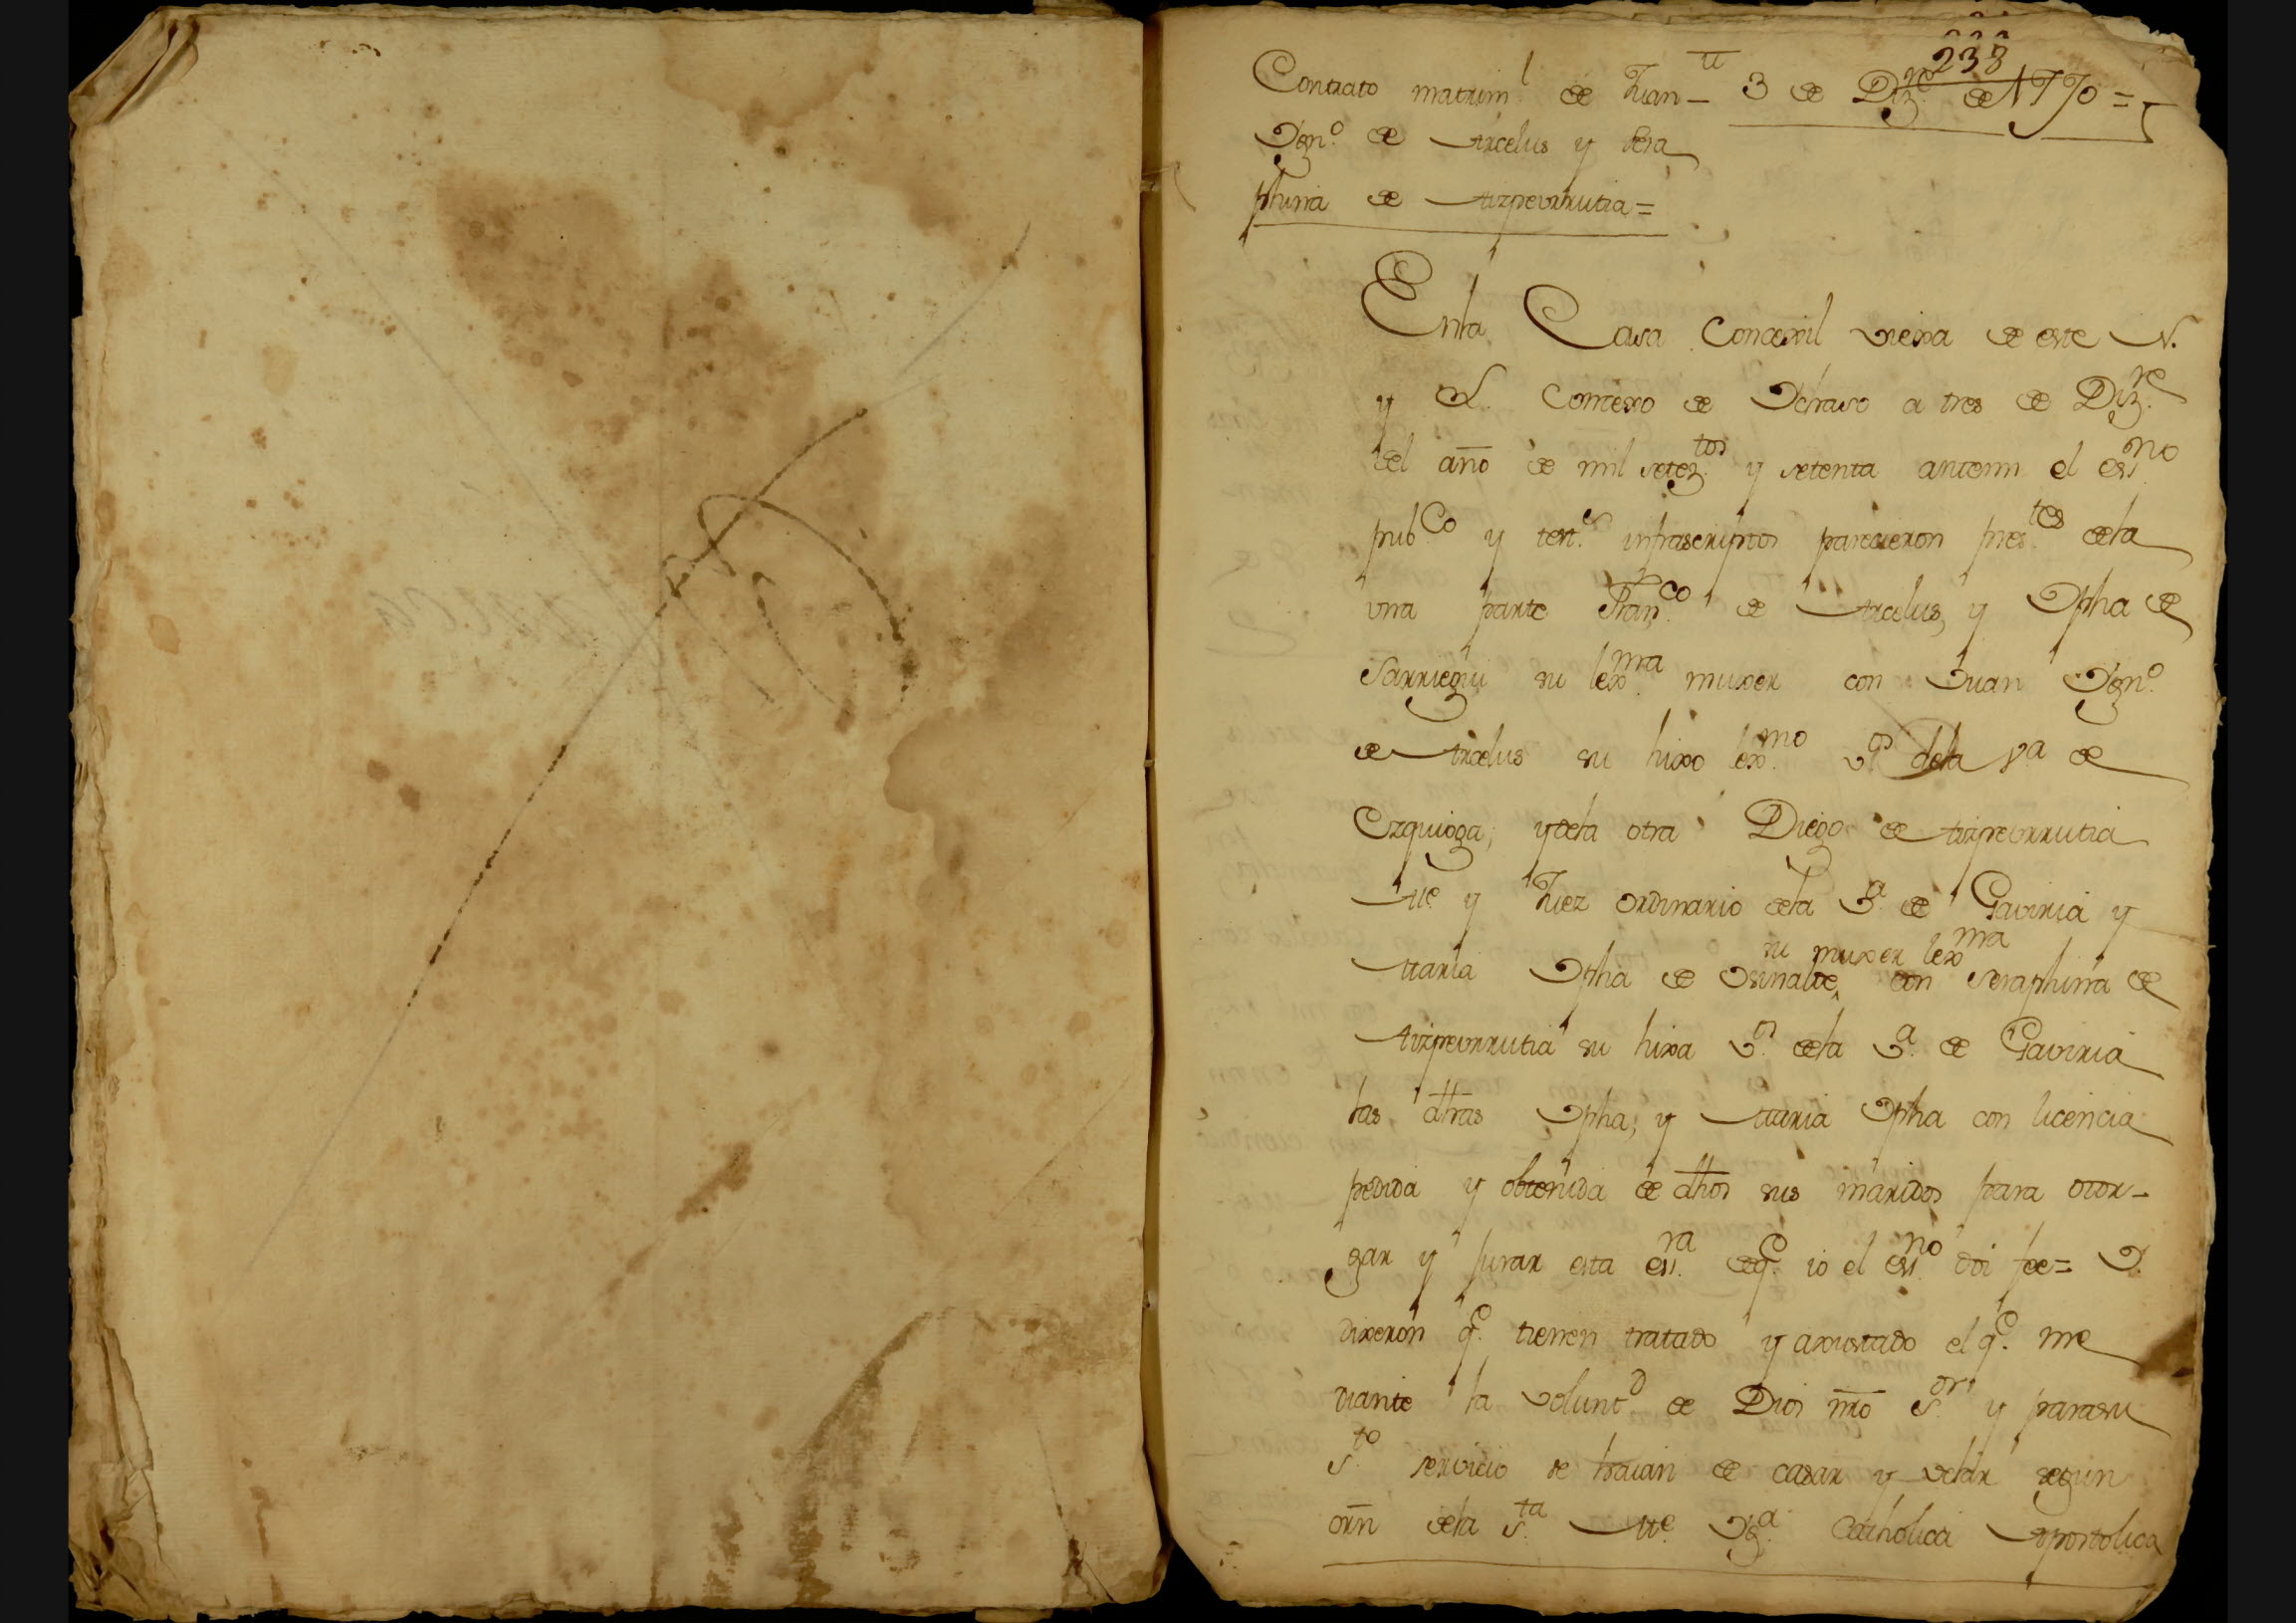 238
Contrato matrim.l de Juan 3 de Diz.re de 1770 =
Ign.o de Arcelus y Sera
phina de Aizpeurrutia =
Enla Casa Concexil viexa de este N.
y L. Concexo de Ichaso a tres de Diz.re
del año de mil setez.tos y setenta antemi el ess.no
pub.co y test.s infrascriptos parecieron pres.tes dela
una parte Fran.co de Arcelus, y Josepha de
Sarriegui su lex.ma muxer con Juan Ign.o
de Arcelus su hixo lex.mo v.os dela v.a de
Ezquioga, y dela otra Diego de Aizpeurrutia
Alle. y Juez ordinario dela V.a de Gaviria y
su muxer lex.ma
Maria Jpha de Osinalde, con Seraphina de
Aizpeurrutia su hixa v.os dela V.a de Gaviria
las dhas Jpha, y Maria Jpha con licencia
pedida y obtenida de dhos sus maridos para otor-
gar y jurar esta ess.ra de q.e io el ess.no doi fee = I
dixeron q.e tienen tratado y axustado el q.e me
diante la volunt.d de Dios nro S.or y para su
s.to servicio se haian de casar y velar segun
orn dela s.ta M.e Igl.a Catholica Apostolica